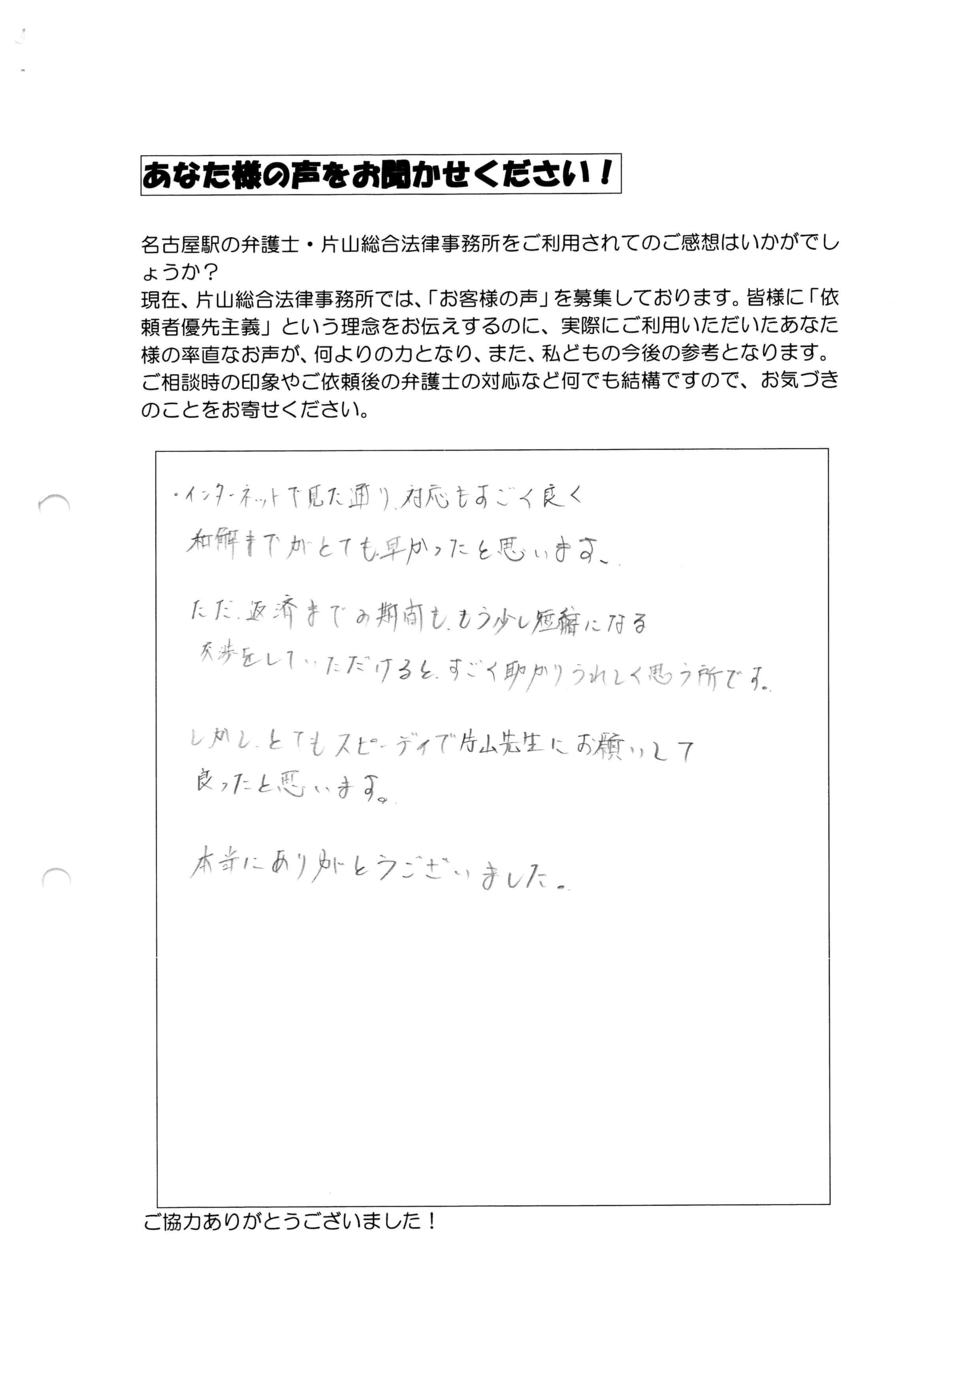 あなた様の声をお聞かせください！
名古屋駅の弁護士・片山総合法律事務所をご利用されてのご感想はいかがでし
ょうか？
現在、片山総合法律事務所では、「お客様の声」を募集しております。皆様に「依
頼者優先主義」という理念をお伝えするのに、実際にご利用いただいたあなた
様の率直なお声が、何よりの力となり、また、私どもの今後の参考となります。
ご相談時の印象やご依頼後の弁護士の対応など何でも結構ですので、お気づき
のことをお寄せください。
・インターネットで見た通り、対応もすごく良く
和解までがとても早かったと思います、
ただ、返済までの期間も、もう少し短縮になる
交渉をしていただけると、すごく助かりうれしく思う所です。
しかし、とてもスピーディで片山先生にお願いして
良ったと思います。
本当にありがとうございました。
ご協力ありがとうございました！